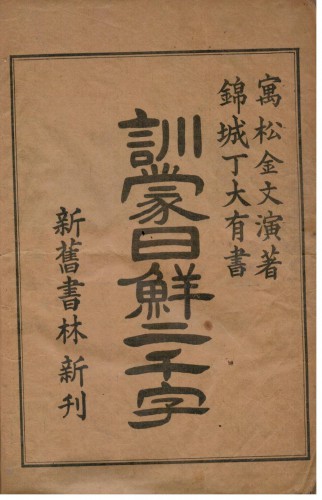 寓松金文演著
錦城丁大有書
訓蒙日鮮二千字
新舊書林 新刊